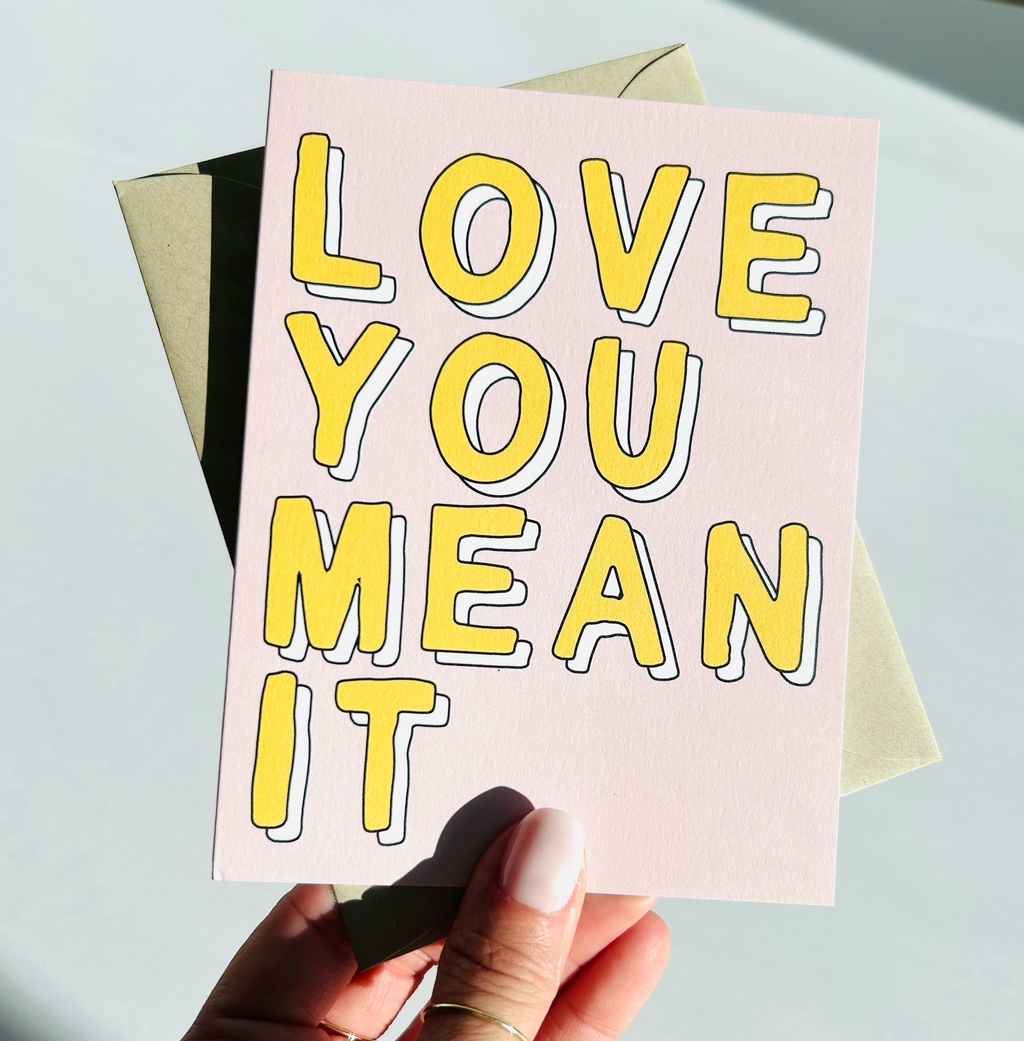 LOVE
YOU
MEAN
IT